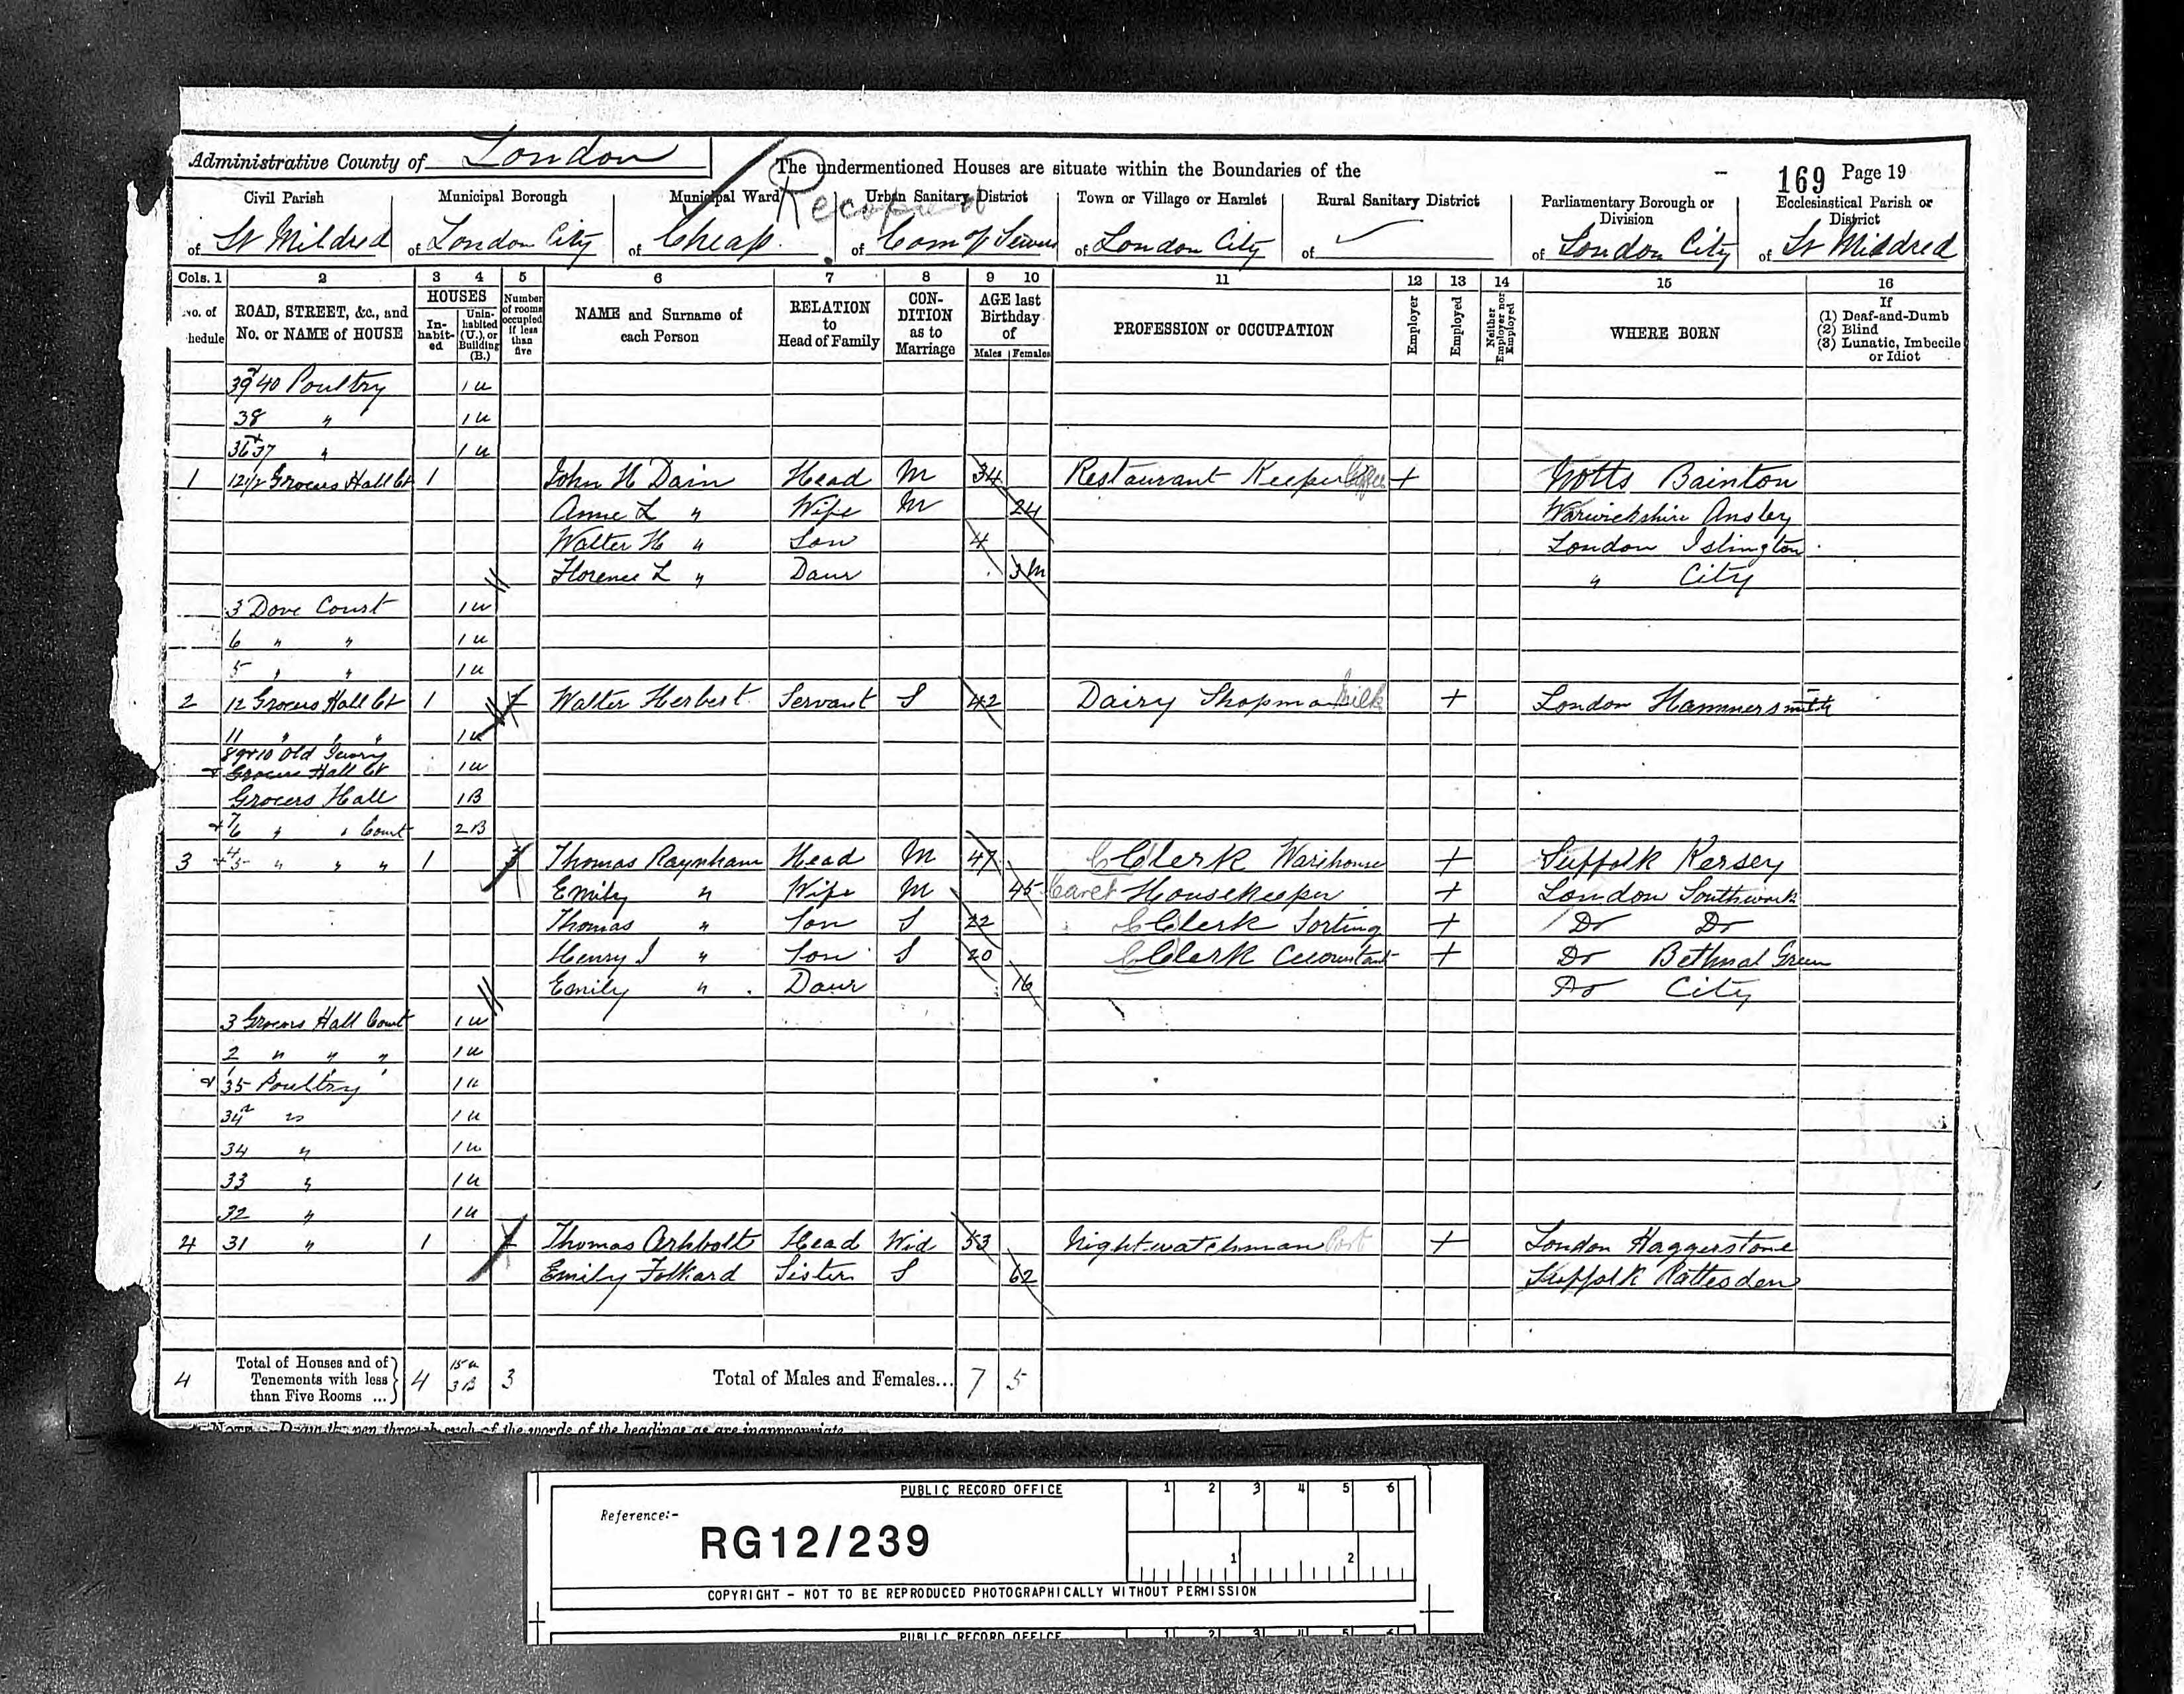 Administrative County of London
The undermentioned Houses are situate within the Boundaries of the
169 Page 19
Civil Parish Municipal Borough Municipal Ward Urban Sanitary District Town or Village or Hamlet Rural Sanitary District Parliamentary Borough or Division Ecclesiastical Parish or District
of St Mildred of London City of Cheap. of Com of Sewers of London City of of London City of St Mildred
Cols. 1 2 3 4 5 6 7 8 9 10 11 12 13 14 15 16
No. of Schedule ROAD, STREET, &c., and No. or NAME of HOUSE HOUSES In-habit-ed Unin-habited (U.), or Building (B.) Number of rooms occupied if less than five NAME and Surname of each Person RELATION to Head of Family CON-DITION as to Marriage AGE last Birthday of Males Females PROFESSION or OCCUPATION Employer Employed Neither Employer nor Employed WHERE BORN If (1) Deaf-and-Dumb (2) Blind (3) Lunatic, Imbecile or Idiot
39 & 40 Poultry 1 u
38 " 1 u
36 & 37 " 1 u
1 12 1/2 Grocers Hall Ct 1 John H Dain Head M 34 Restaurant Keeper Coffee + Notts Bainton
Anne L " Wife M 24 Warwickshire Ansley
Walter H " Son 4 London Islington
Florence L " Daur 3 m " City
3 Dove Court 1 u
6 " " 1 u
5 " " 1 u
2 12 Grocers Hall Ct 1 Walter Herbert Servant S 42 Dairy Shopman Milk + London Hammersmith
11 " " " 1 u
8 9 & 10 Old Jewry
& Grocers Hall Ct 1 u
Grocers Hall 1 B
7 & 6 " " Court 2 B
3 4 & 5 " " " 1 Thomas Raynham Head M 47 C Clerk Warehouse + Suffolk Kersey
Emily " Wife M 45 Caret Housekeeper + London Southwark
Thomas " Son S 22 C Clerk Sorting + Do Do
Henry J " Son S 20 C Clerk Accountant + Do Bethnal Green
Emily " Daur 16 Do City
3 Grocers Hall Court 1 u
2 " " " 1 u
1 " " "
& 35 Poultry 1 u
34 2 " 1 u
34 " 1 u
33 " 1 u
32 " 1 u
4 31 " 1 Thomas Archbolt Head Wid 53 Nightwatchman Port + London Haggerstone
Emily Folkard Sister S 62 Suffolk Rattesden
4 Total of Houses and of Tenements with less than Five Rooms ... 4 15 u 3 B 3 Total of Males and Females... 7 5
NOTE.—Draw the pen through such of the words of the headings as are inappropriate.
PUBLIC RECORD OFFICE
Reference:-
RG12/239
1 2 3 4 5 6
1 2
COPYRIGHT - NOT TO BE REPRODUCED PHOTOGRAPHICALLY WITHOUT PERMISSION
PUBLIC RECORD OFFICE 1 2 3 4 5 6